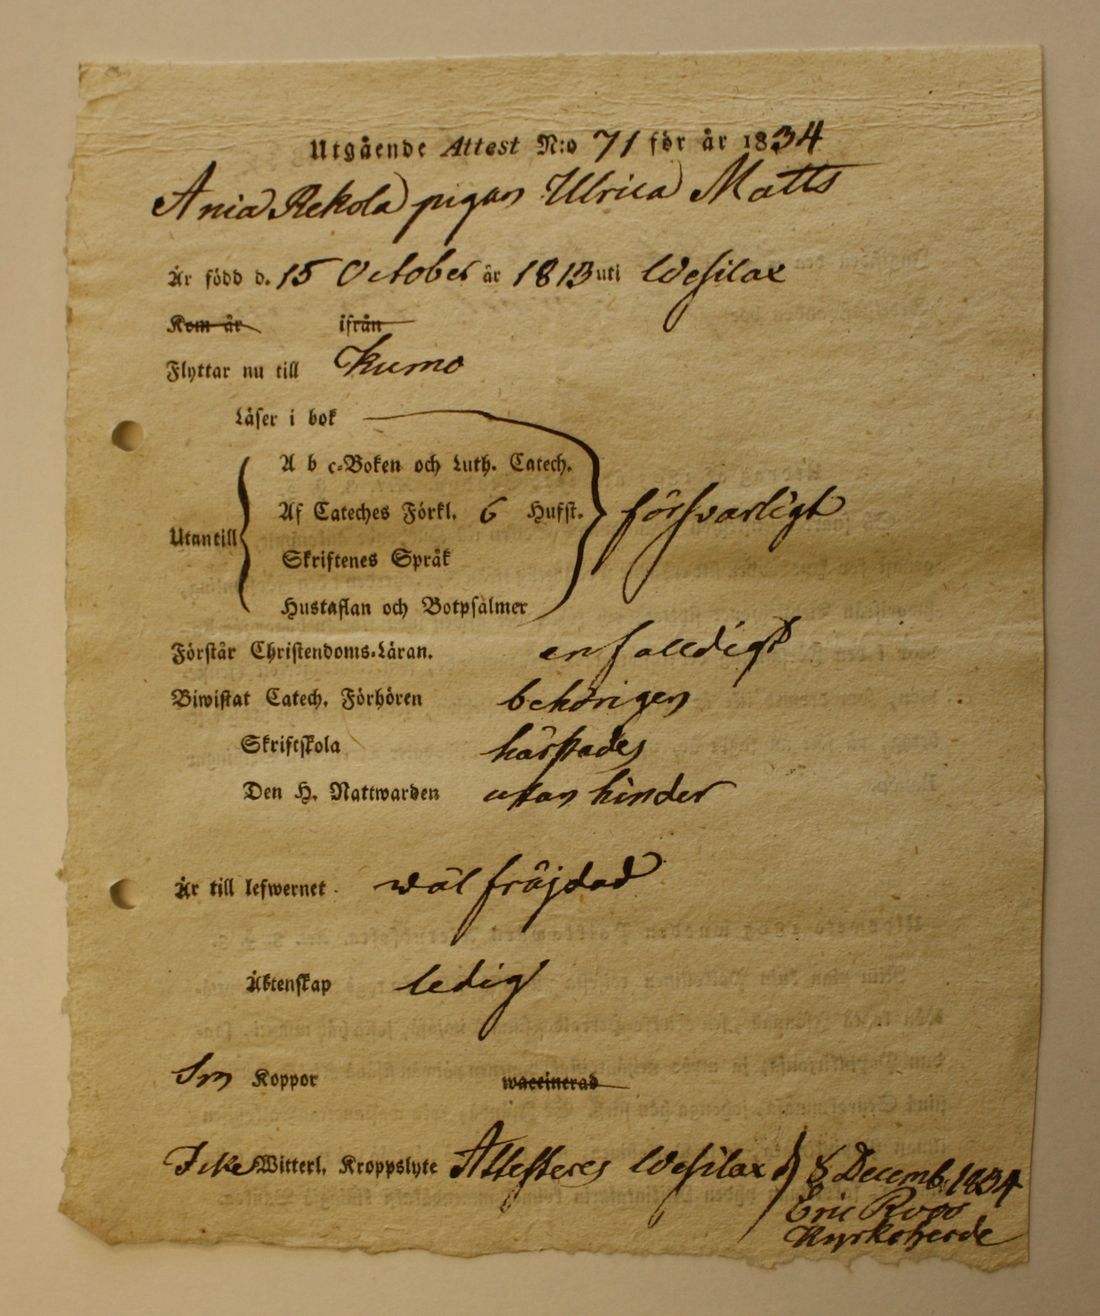 Utgående Attest N:o 71 för år 1834
Ania Rekola pigan Ulrica Matts
Är född d. 15 October år 1813 uti Wesilax
Kom år ifrån
Flyttar nu till Kumo
Läser i bok
A b c-Boken och Luth. Catech.
Af Cateches Förkl. 6 Hufst. försvarligt
Utantill
Skriftenes Språk
Hustaflan och Botpsalmer
Förstår Christendoms-Läran. enfalldigt
Biwistat Catech. Förhören behörigen
Skriftskola härstädes
Den H. Nattwarden utan hinder
Är till lefwernet wäl fräjdad
Äktenskap ledig
Koppor waccinerad
Icke Witterl. Kroppslyte Attesteres Wesilax d 8 Decemb. 1834
Eric Roos
Kyrkoherde